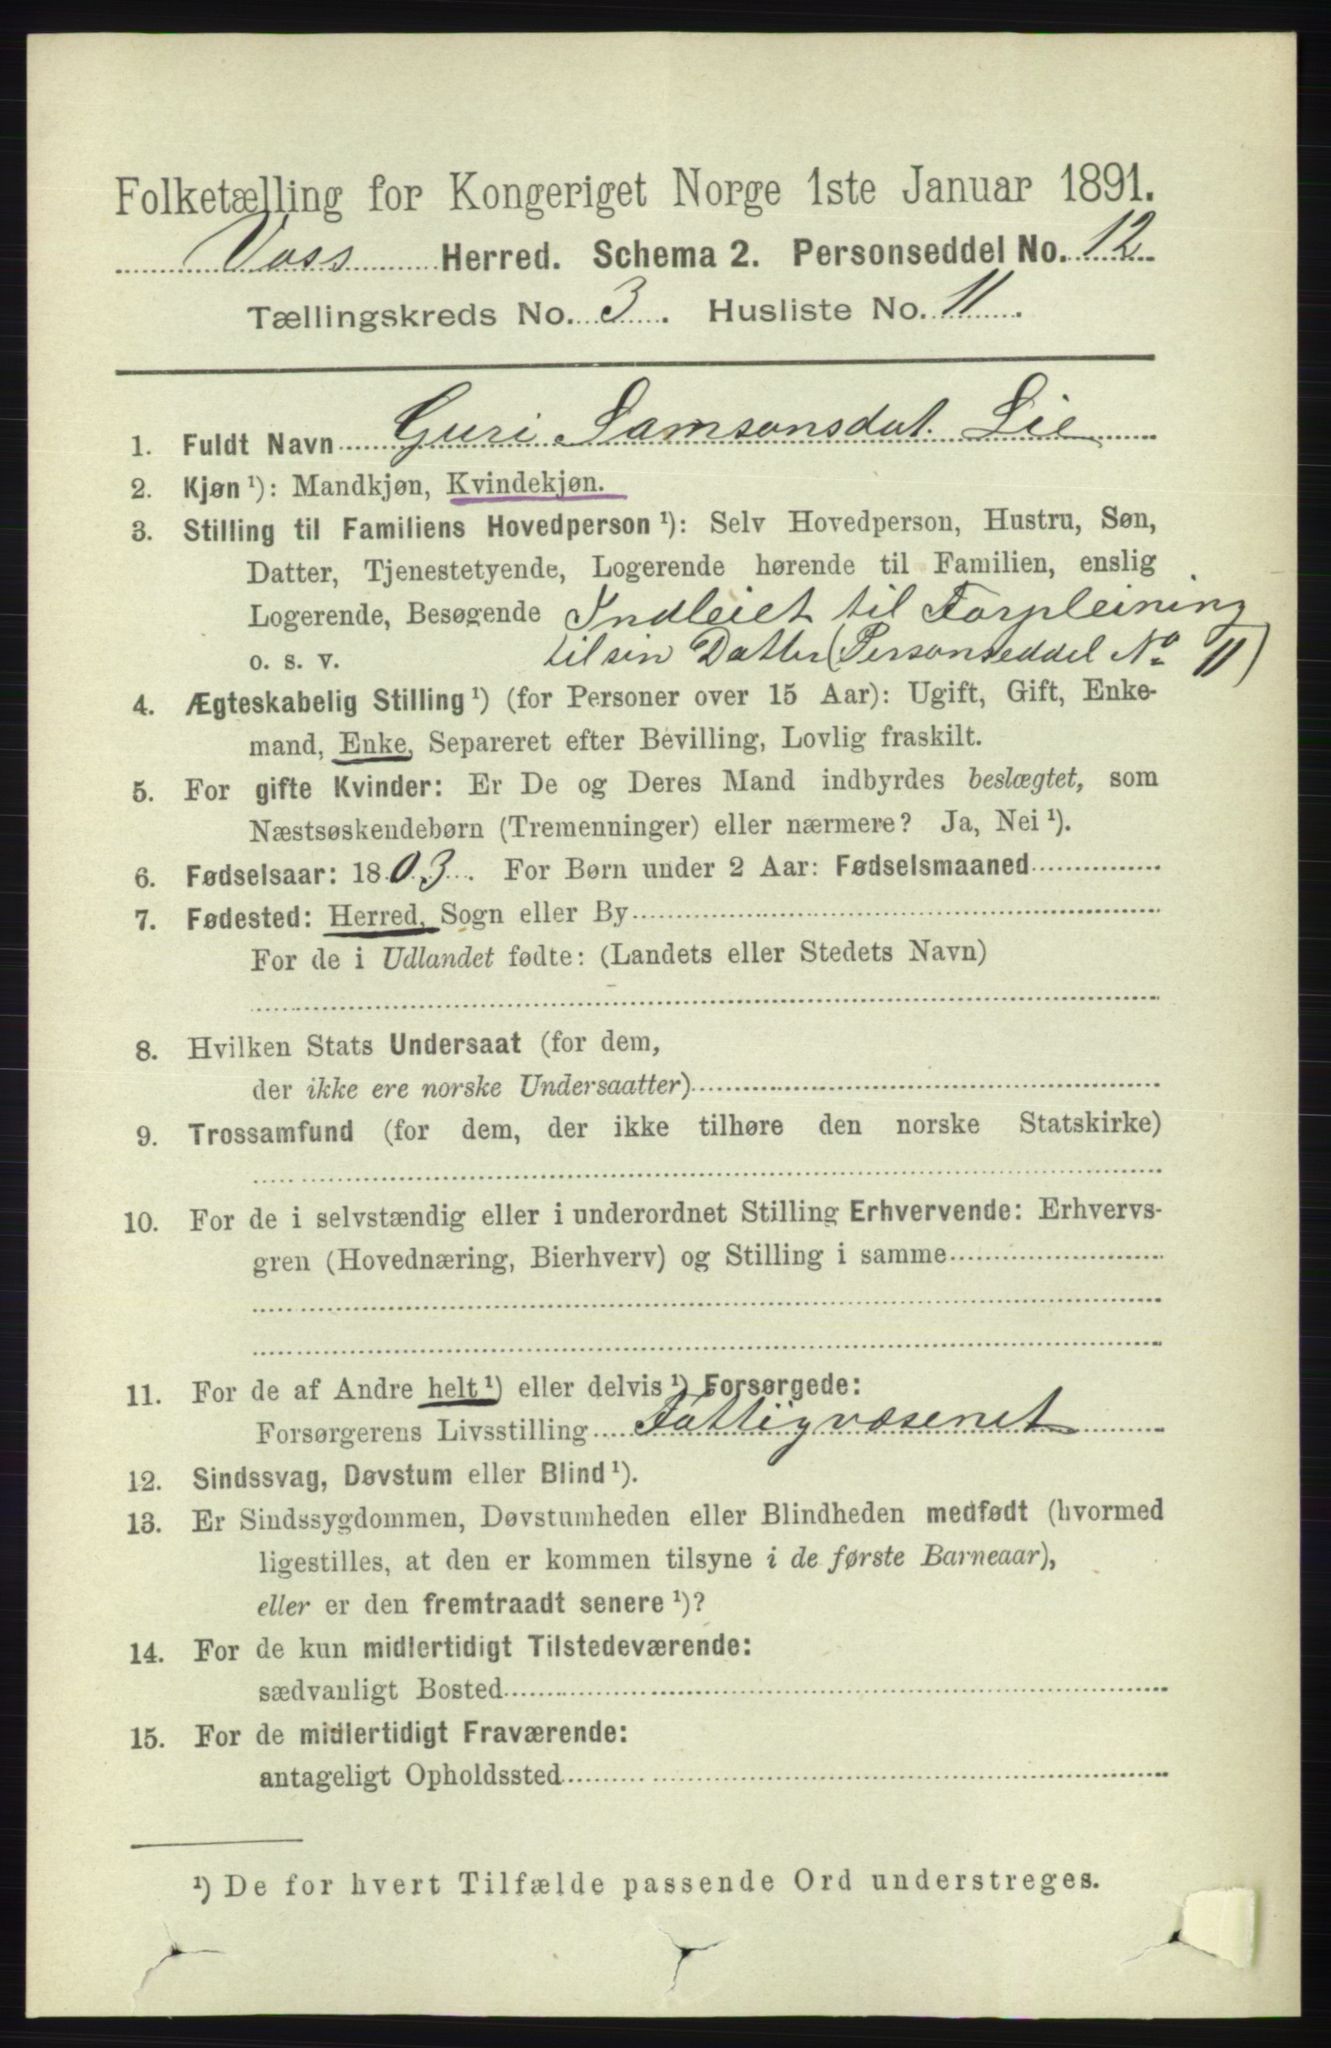 Folketælling for Kongeriget Norge 1ste Januar 1891.
Voss Herred. Schema 2. Personseddel No. 12
Tællingskreds No. 3. Husliste No. 11.
1. Fuldt Navn Guri Samsonsdat. Lie
2. Kjøn ¹): Mandkjøn, Kvindekjøn.
3. Stilling til Familiens Hovedperson ¹): Selv Hovedperson, Hustru, Søn,
Datter, Tjenestetyende, Logerende hørende til Familien, enslig
Logerende, Besøgende Indleiet til Forpleining
o. s. v. til sin Datter (Personseddel No 11)
4. Ægteskabelig Stilling ¹) (for Personer over 15 Aar): Ugift, Gift, Enke-
mand, Enke, Separeret efter Bevilling, Lovlig fraskilt.
5. For gifte Kvinder: Er De og Deres Mand indbyrdes beslægtet, som
Næstsøskendebørn (Tremenninger) eller nærmere? Ja, Nei ¹).
6. Fødselsaar: 1803. For Børn under 2 Aar: Fødselsmaaned
7. Fødested: Herred, Sogn eller By
For de i Udlandet fødte: (Landets eller Stedets Navn)
8. Hvilken Stats Undersaat (for dem,
der ikke ere norske Undersaatter)
9. Trossamfund (for dem, der ikke tilhøre den norske Statskirke)
10. For de i selvstændig eller i underordnet Stilling Erhvervende: Erhvervs-
gren (Hovednæring, Bierhverv) og Stilling i samme
11. For de af Andre helt ¹) eller delvis ¹) Forsørgede:
Forsørgerens Livsstilling Fattigvæsenet
12. Sindssvag, Døvstum eller Blind ¹).
13. Er Sindssygdommen, Døvstumheden eller Blindheden medfødt (hvormed
ligestilles, at den er kommen tilsyne i de første Barneaar),
eller er den fremtraadt senere ¹)?
14. For de kun midlertidigt Tilstedeværende:
sædvanligt Bosted
15. For de midlertidigt Fraværende:
antageligt Opholdssted
¹) De for hvert Tilfælde passende Ord understreges.